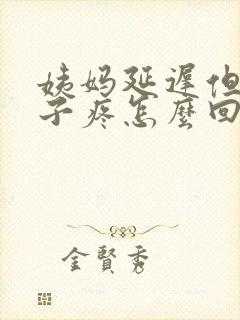 姨妈延遲但
子疼怎麼回
金賢秀